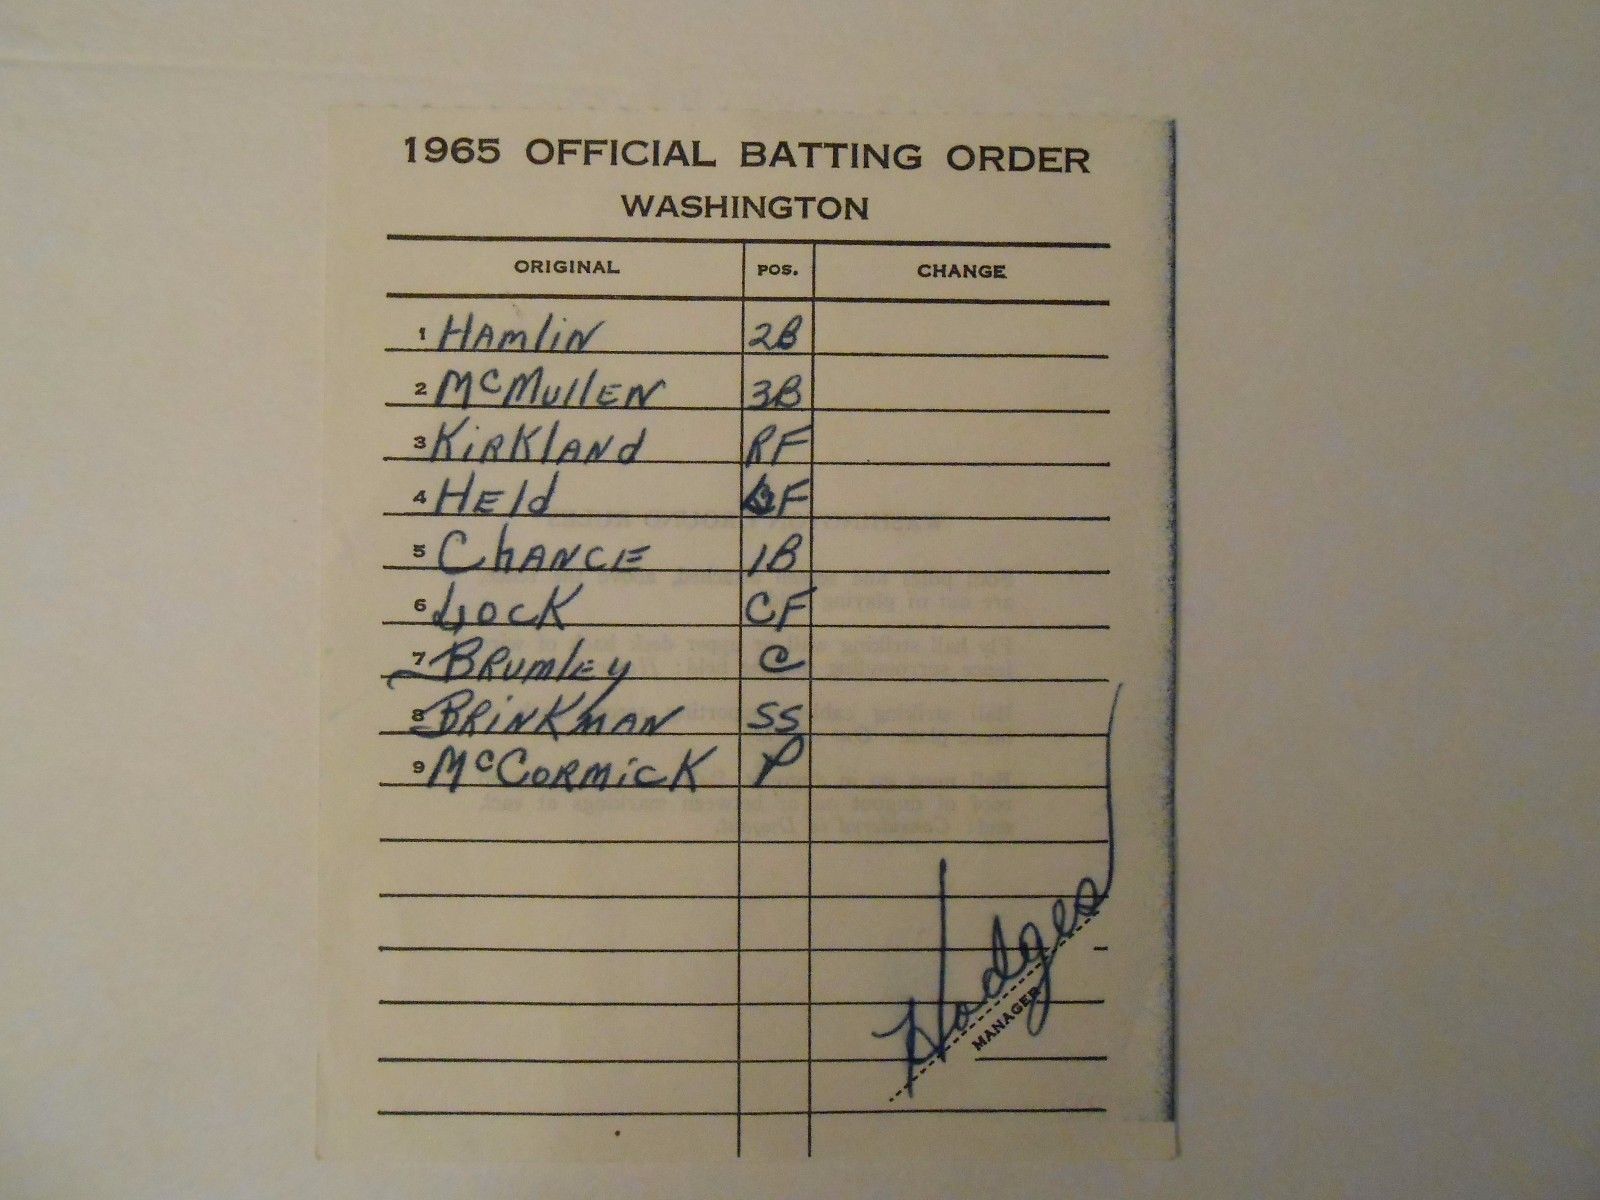 1965 OFFICIAL BATTING ORDER
WASHINGTON
ORIGINAL POS. CHANGE
1 HAmliN 2B
2 McMullEN 3B
3 KiRKlANd RF
4 HEld LF
5 ChANCE 1B
6 LOCK CF
7 BRUMlEy C
8 BRiNKMAN SS
9 McCORMiCK P
Hodges
MANAGER